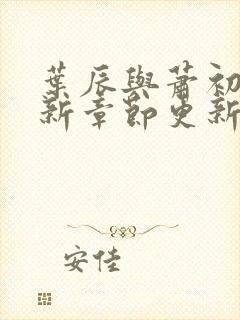 葉辰與蕭初
新章節更新
安佳